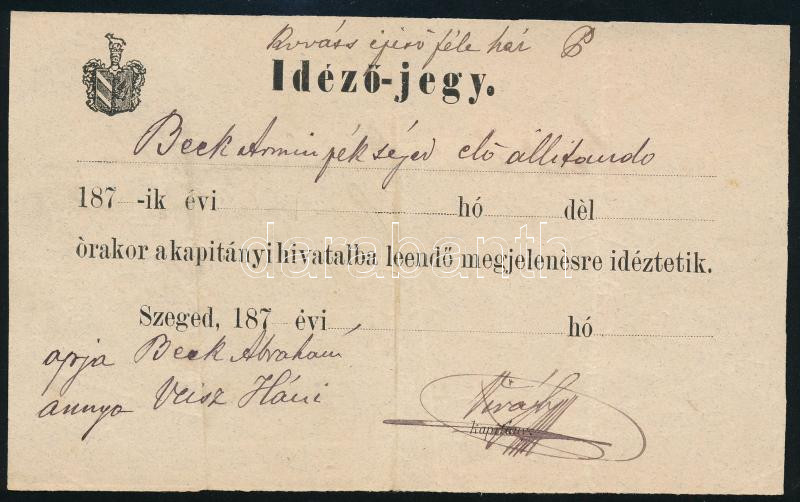 féle ház
Idéző-jegy.
Beck Armin pék előállitando
187 -ik évi hó dèl
òrakor a kapitányi hivatalba leendő megjelenèsre idéztetik.
Szeged, 187 évi hó
apja Beck Abrahám
annya Veisz Háni
kapitány
darabanth